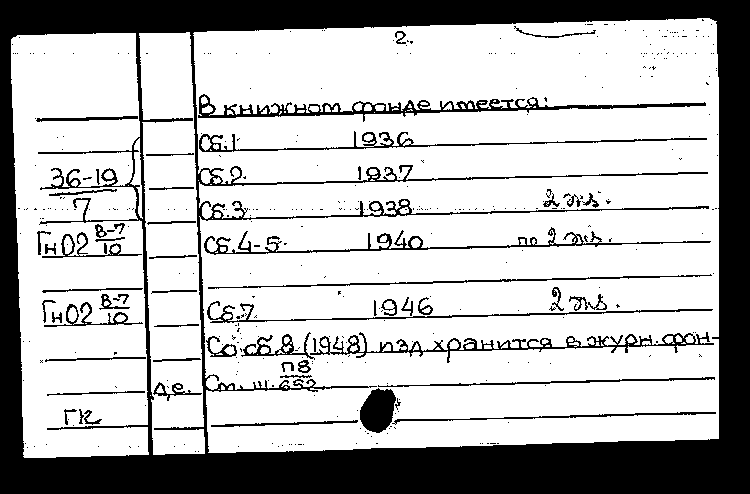 2.
В книжном фонде имеется:
Сб.1 1936
36-19 Сб.2 1937
7 Сб.3 1938 2 экз.
Гн02 В-7/10 Сб.4-5 1940 по 2 экз.
Гн02 В-7/10 Сб.7 1946 2 экз.
Со сб.8 (1948) изд хранится в журн. фон-
де. См. ш. П8/652
ГК